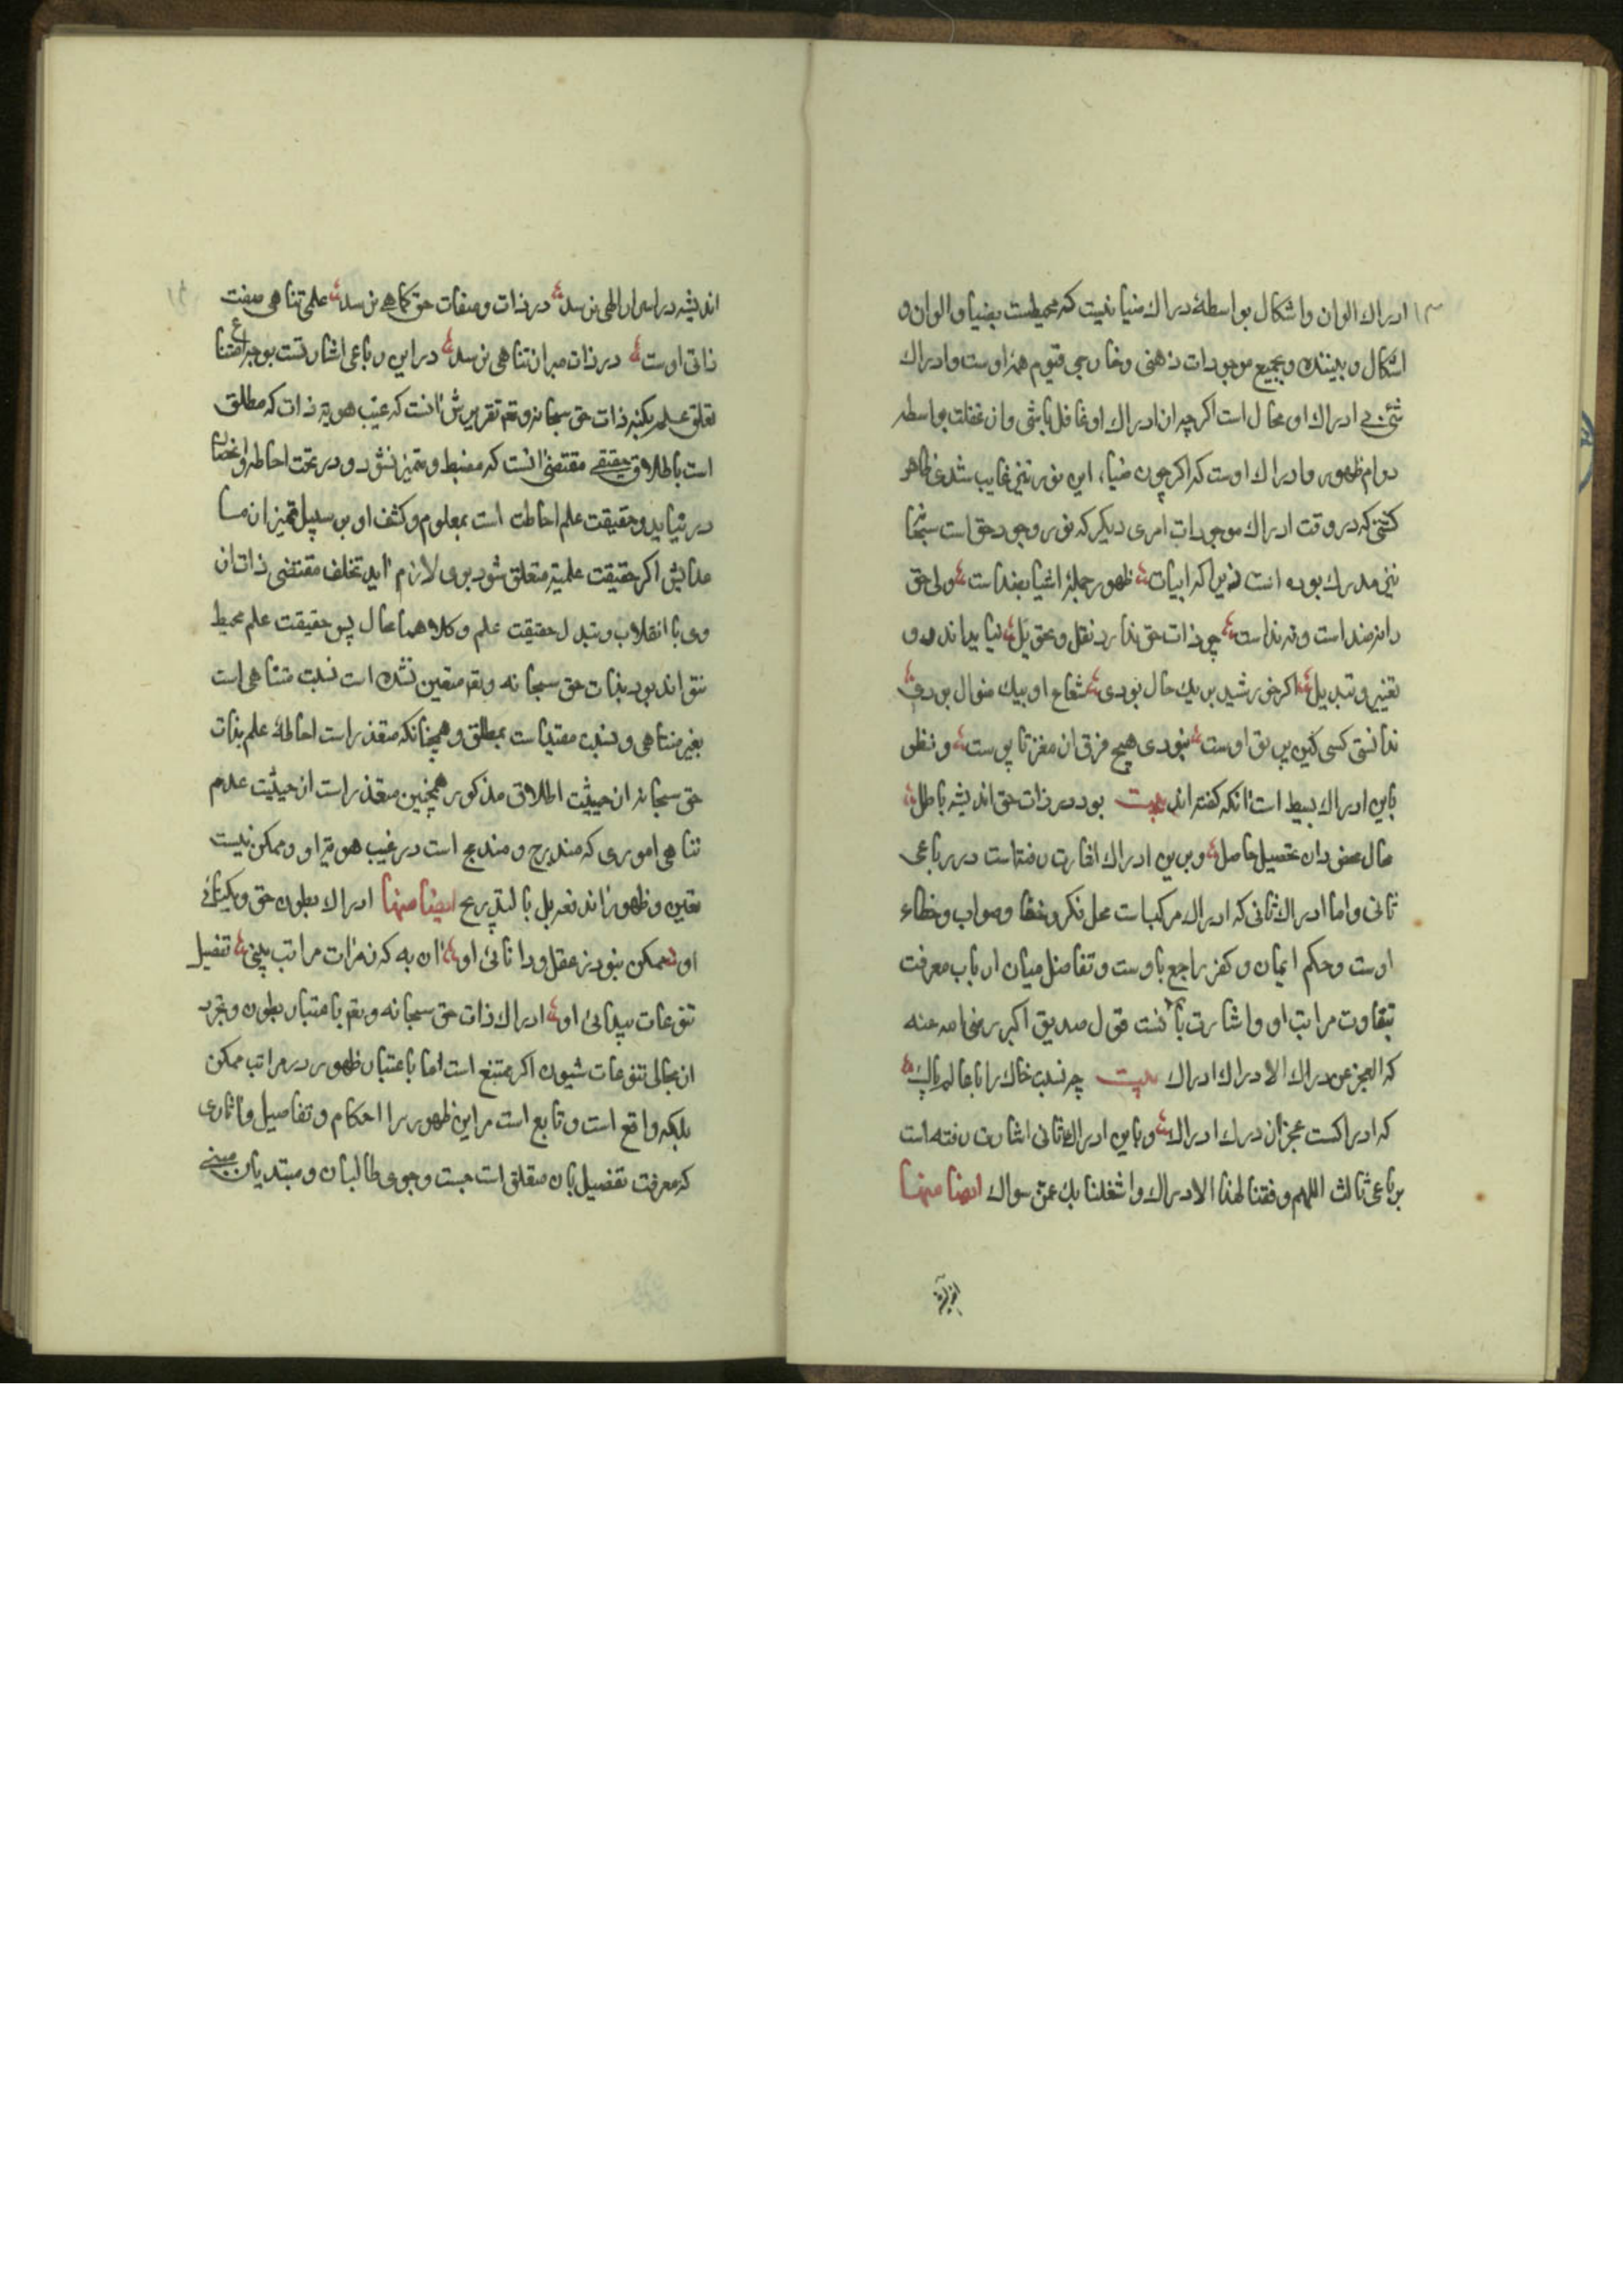 ادراک الوان و اشکال بواسطهٔ دراک ضیا نیست که محیطست بضیا و الوان و
اشکال و بیننده و بجمیع موجودات ذهنی و خارجی قیوم همه اوست و ادراک
شئ بی ادراک او محال است اکرچه از ادراک او غافل باشی و ان غفلت بواسطه
دوام ظهور و ادراک اوست که اکر چون ضیاء این نور نیز غایب شدی ظاهر
کشتی که در وقت ادراک موجودات امری دیکر که نور وجود حق است سبحانه
نیز مدرک بوده است زیرا که ابیات ظهور جملهٔ اشیا بضد است ولی حق
را نه ضد است و نه ند است چو ذات حق ندارد نقل و تحویل نیاید اندرو
تغییر و تبدیل اکر خورشید بر یک حال بودی شعاع او بیک منوال بودی
ندانستی کسی کین پرتو اوست نبودی هیچ فرق از مغز تا پوست و نظر
باین ادراک بسیط است انکه کفته اند بیت بود در ذات حق اندیشه باطل
محال محض دان تحصیل حاصل و برین ادراک اشارت رفته است در رباعی
ثانی و اما ادراک ثانی که ادراک مرکب است محل فکر و خفا و صواب و خطاء
اوست و حکم ایمان و کفر راجع باوست و تفاضل میان ارباب معرفت
بتفاوت مراتب او و اشارت بانست قول صدیق اکبر رضی الله عنه
که العجز عن درک الادراک ادراک بیت چه نسبت خاک را با عالم پاک
که ادراکست عجز از درک ادراک و باین ادراک ثانی اشارت رفته است
برباعی ثالث اللهم وفقنا لهذا الادراک و اشغلنا بک عمن سواک ایضا منها
اندیشه در اسرار الهی نرسد در ذات و صفات حق کماهی نرسد علمی تناهی صفت
ذاتی اوست در ذات مبرا ز تناهی نرسد در این رباعی اشارتست بوجه امتناع
تعلق علم بکنه ذات حق سبحانه و تع تقریرش انست که غیب هویه ذات که مطلق
است باطلاق حقیقی مقتضی انست که مضبط و متمیز نشود و در تحت احاطه و انحصار
در نیاید و حقیقت علم احاطت است بمعلوم و کشف او بر سبیل تمیز از ما
عدایش اکر حقیقت علمیه متعلق شود بوی لازم اید تخلف مقتضی ذات از
وی یا انقلاب و تبدل حقیقت علم و کلاهما محال پس حقیقت علم محیط
نتواند بود بذات حق سبحانه و نسبت متناهی است
بغیر متناهی و نسبت مقید است بمطلق و همچنانکه متعذر است احاطهٔ علم بذات
حق سبحانه از حیثیت اطلاق مذکور همچنین متعذر است از حیثیت عدم
تناهی اموری که مندرج و مندمج است در غیب هویة او و ممکن نیست
تعین و ظهور بل بالتدریج ایضا منها ادراک بطون حق و یکتائی
او ممکن نبود ز عقل و دانائی او ان به که ز مرات مراتب بینی تفصیل
تنوعات پیدائی او ادراک ذات حق سبحانه و تع باعتبار بطون و تجرد
از مجالی تنوعات شیون اکر ممتنع است اما باعتبار ظهور در مراتب ممکن
بلکه واقع است و تابع است مر این ظهور را احکام و تفاصیل و اثاری
که معرفت تفضیل بان متعلق است جست و جوی طالبان و مبتدیان مبنی